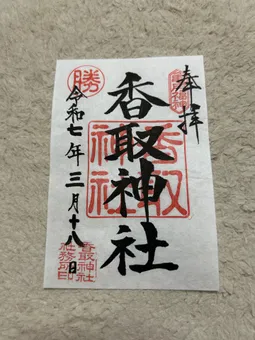 奉拝
香取神社
令和七年三月十八日
勝
香取
神社
香取神社
社務所印